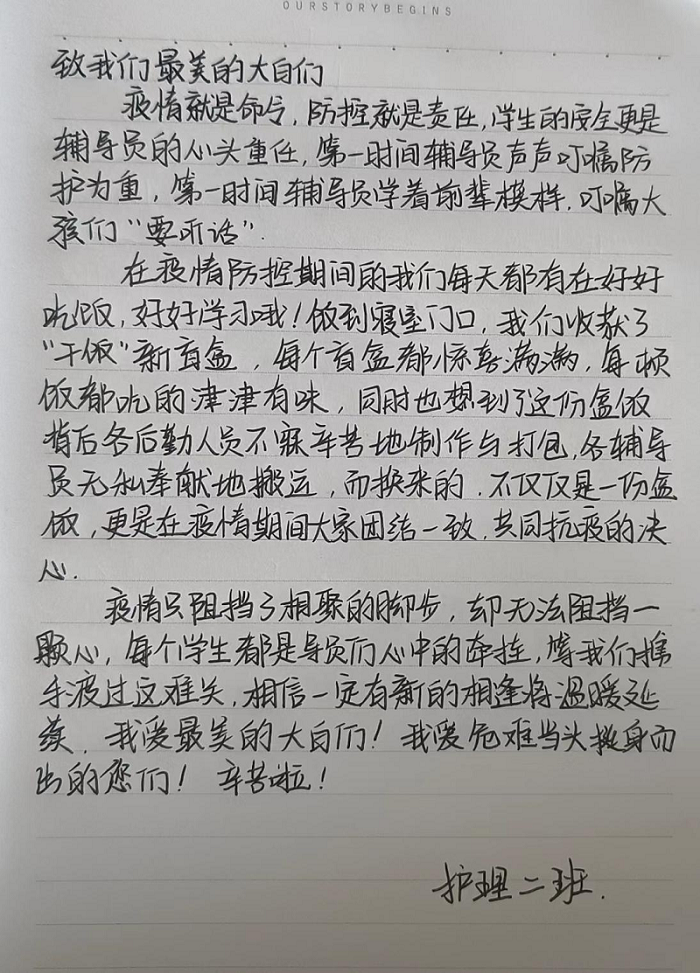 OURSTORYBEGINS
致我们最美的大白们
疫情就是命令,防控就是责任,学生的安全更是
辅导员的心头重任,第一时间辅导员声声叮嘱防
护为重,第一时间辅导员学着前辈模样.叮嘱大
孩们“要听话”.
在疫情防控期间的我们每天都有在好好
吃饭,好好学习哦!饭到寝室门口,我们收获了
“干饭”新盲盒,每个盲盒都惊喜满满,每顿
饭都吃的津津有味,同时也想到了这份盒饭
背后各后勤人员不辞辛苦地制作与打包,各辅导
员无私奉献地搬运,而换来的.不仅仅是一份盒
饭,更是在疫情期间大家团结一致.共同抗疫的决
心.
疫情只阻挡了相聚的脚步,却无法阻挡一
颗心,每个学生都是导员们心中的牵挂,等我们携
手渡过这难关,相信一定有新的相逢将温暖延
续.我爱最美的大白们!我爱危难当头挺身而
出的您们!辛苦啦!
护理二班.